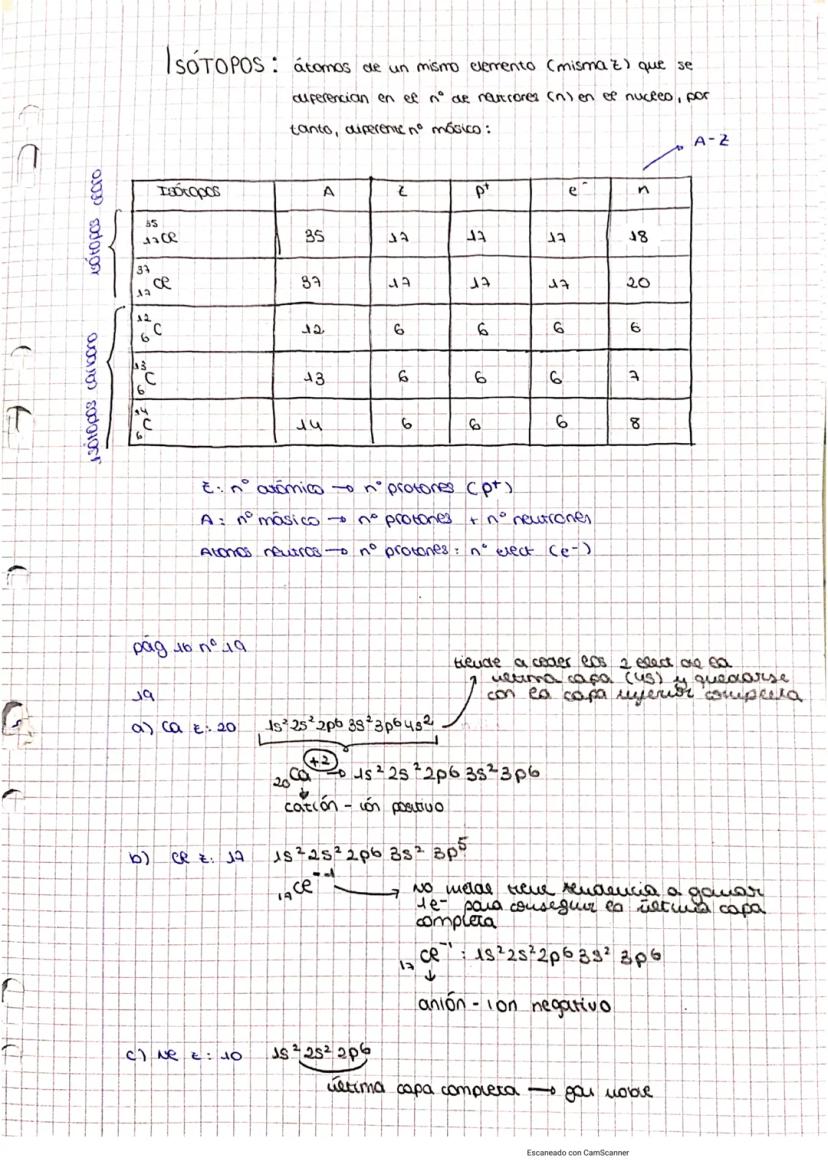 ISÓTOPOS: átomos de un mismo elemento (misma Z) que se
diferencian en el nº de neutrones (n) en el nucleo, por
tanto, diferente nº másico:
A-Z
Isótopos A Z p+ e- n
isótopos cloro
35 17 Cl 35 17 17 17 18
37 17 Cl 37 17 17 17 20
isótopos carbono
12 6 C 12 6 6 6 6
13 6 C 13 6 6 6 7
14 6 C 14 6 6 6 8
Z: nº atómico → nº protones (p+)
A: nº másico → nº protones + nº neutrones
Atomos neutros → nº protones = nº elect (e-)
pág 16 nº 19
tiende a ceder los 2 elect de la
última capa (4s) y quedarse
con la capa inferior completa
19
a) Ca Z: 20 1s² 2s² 2p6 3s² 3p6 4s²
20 Ca +2 → 1s² 2s² 2p6 3s² 3p6
catión - ión positivo
b) Cl Z: 17 1s² 2s² 2p6 3s² 3p5
17 Cl -1 → No metal tiene tendencia a ganar
1e- para conseguir la última capa
completa
17 Cl -1 : 1s² 2s² 2p6 3s² 3p6
anión - ion negativo
c) Ne Z: 10 1s² 2s² 2p6
última capa completa → gas noble
Escaneado con CamScanner